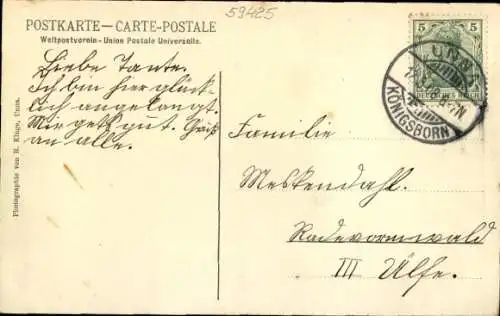 59425
POSTKARTE — CARTE-POSTALE
Weltpostverein - Union Postale Universelle.
Liebe Tante.
Ich bin hier glück-
lich angelangt.
Mir geht gut. Gruß
an alle.
Photographie von R. Kluge, Unna.
5 5
DEUTSCHES REICH
UNNA
KÖNIGSBORN
Familie
Meskendahl.
Radevormwald
III Ülfe.